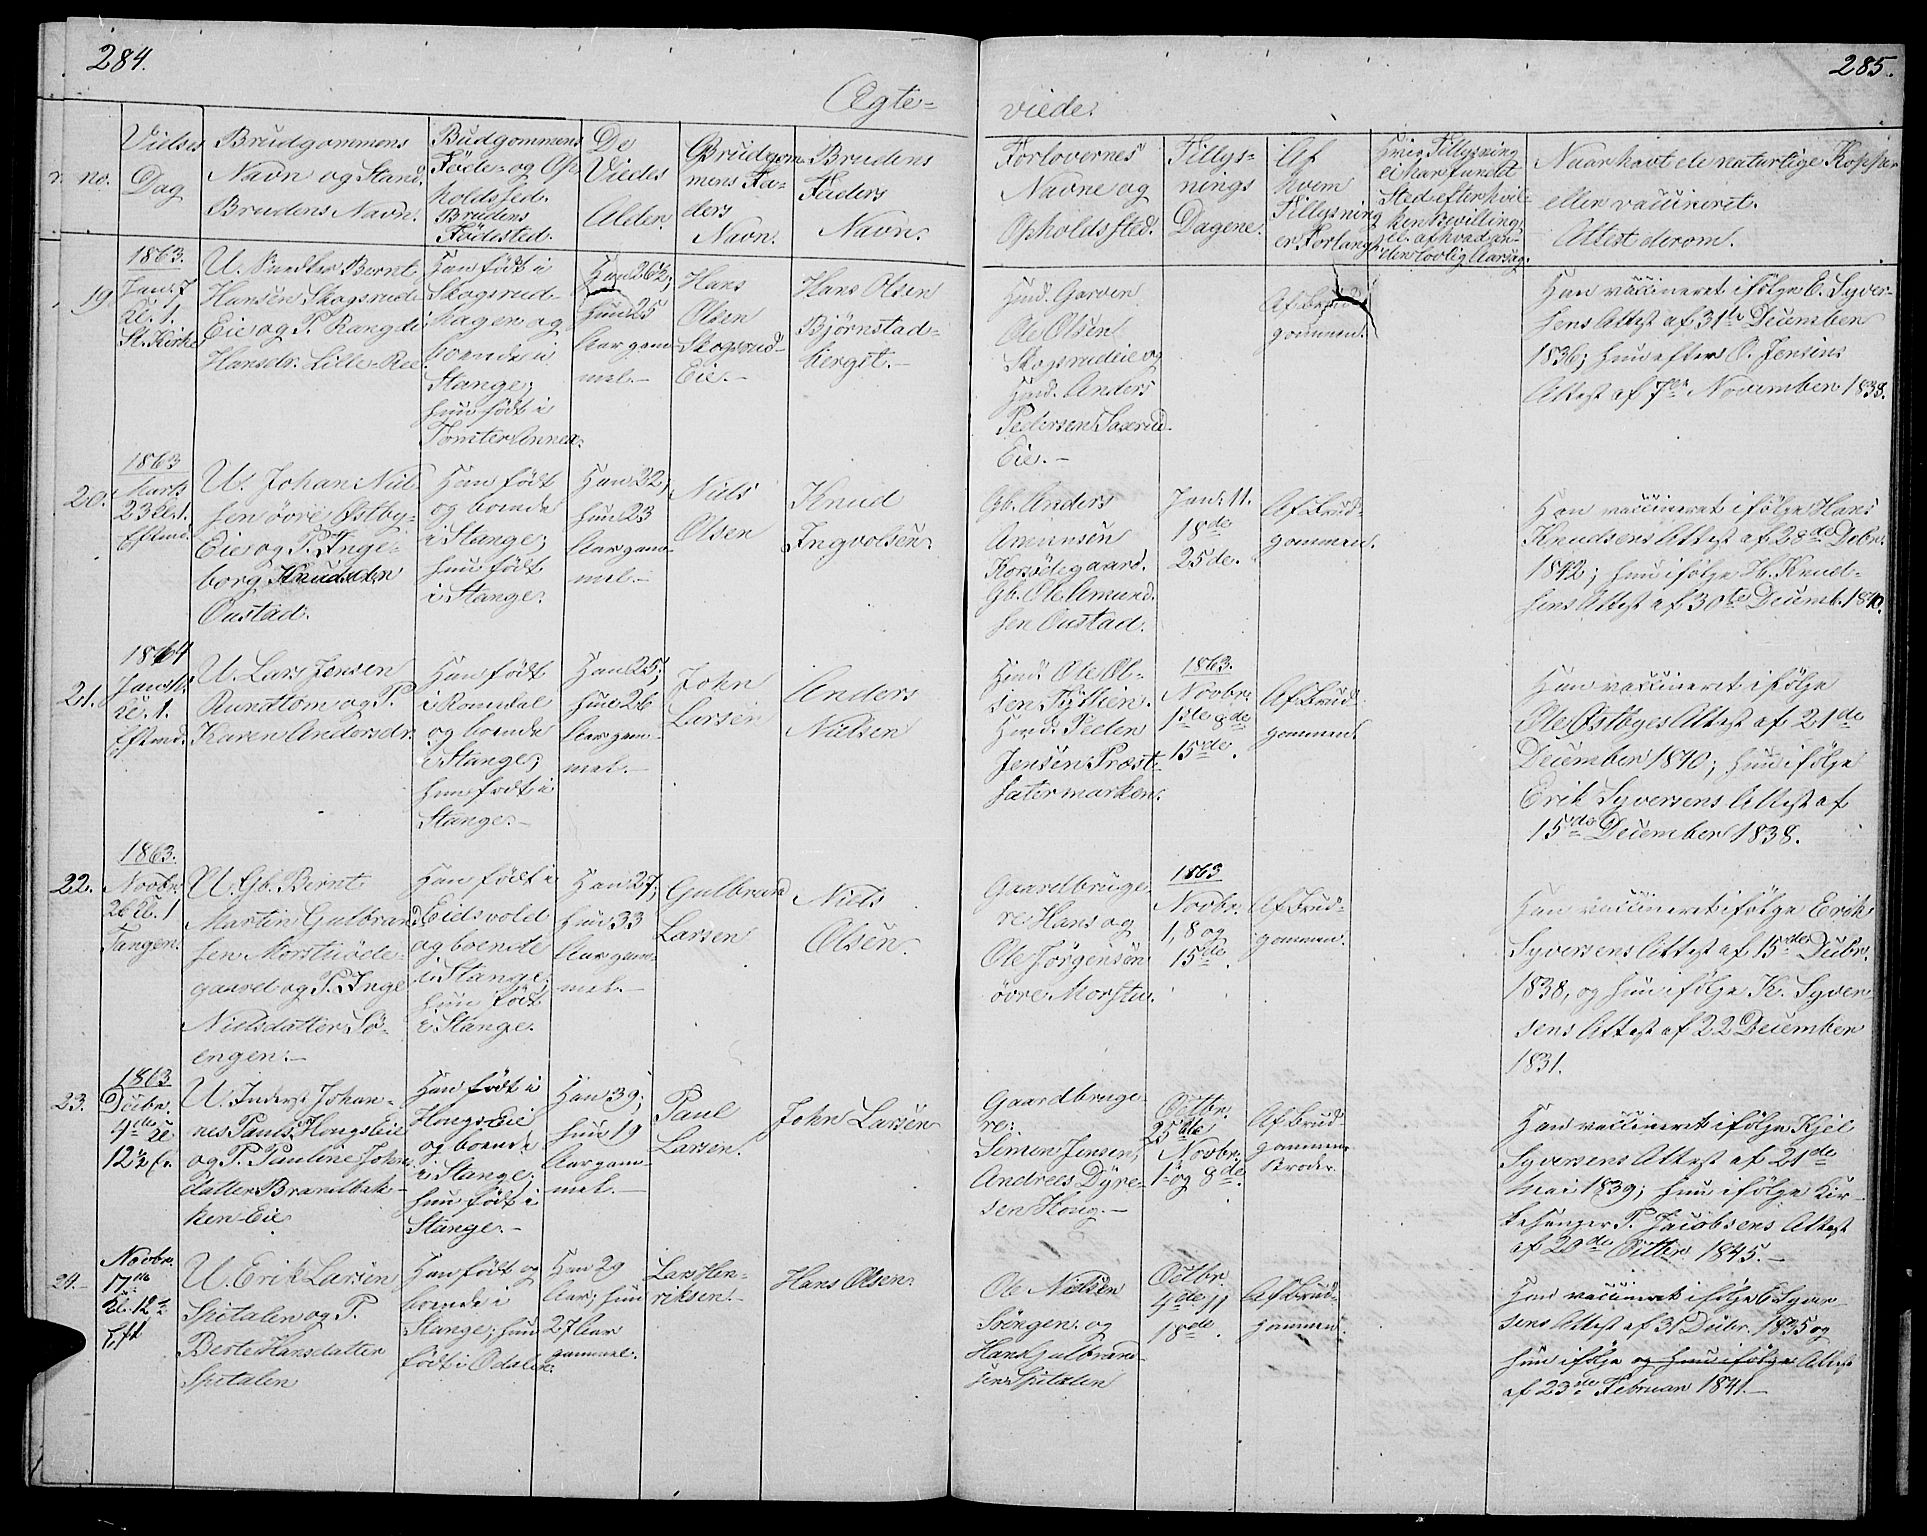 284.
285.
Ægte-
viede.
no.
Vielses
Dag
Brudgommens
Navn og Stand.
Brudens Navn.
Budgommens
Føde- og Op-
holdssted.
Brudens
Fødested.
De
Viedes
Alder.
Brudgom-
mens Fa-
ders
Navn.
Brudens
Faders
Navn.
Forlovernes
Navne og
Opholdssted.
Tillys-
nings
Dagene.
Af
hvem
Tillysning
er Forlangt.
Hvis Tillysning
ei har fundet
Sted efter hvil-
ken Bevilling,
Naar havt de naturlige Kopper
eller vaccineret.
Attest derom.
19.
1863.
Jan. 7
Kl. 1.
St. Kirke
U. Bernt
Hansen Skogsrud-
Eie og P. Rangdi
Hansdr. Lille-Ree
Han født i
Skogsrud-
hagen og
boende i
Stange;
hun født i
Tomter Annex.
Han 26½;
hun 25
Aar gam-
mel.-
Hans
Olsen
Skogsrud-
Eie.-
Hans Olsen
Bjørnstad-
bergst.-
Husmd. Garver
Ole Olsen
Skogsrudeie og
Husmd. Anders
Pedersen Saxrud
Eie.-
Af Brud-
gommen.
Han vaccineret ifølge E. Syver-
sens Attest af 31te December
1836; hun efter O. Jensens
Attest af 7de November 1838.
20.
1863
Marts
23 Kl. 1.
Efterm.
U. Johan Niel-
sen øvre Østby-
Eie og P. Inge-
borg Knudsdtr
Oustad.
Han født
og boende
i Stange;
hun født
i Stange.
Han 22;
hun 23
Aar gam-
mel.-
Niels
Olsen
Knud
Ingvolsen.
Gb. Anders
Amunsen
Korsødegaard.
Gb. Ole Amund-
sen Oustad.
Jan. 11.
18de
25de.
Af Brud-
gommen.
Han vaccineret ifølge Hans
Knudsens Attest af 28de Debr.
1842; hun ifølge H. Knud-
sens Attest af 30te Decemb. 1840.
21.
1864
Jan. 11.
Kl. 1.
Efterm.
U. Lars Jensen
Rundtom og P.
Karen Andersdr.
Han født
i Romedal
og boende
i Stange;
hun født i
Stange.-
Han 25;
hun 26
Aar gam-
mel.-
John
Larsen
Anders
Nielsen
Husmd. Ole Ol-
sen Tyllien.
Husmd. Peder
Jensen Præst-
sætermarken.
1863.
Novbr.
1ste 8de
15de.
Af Brud-
gommen.
Han vaccineret ifølge
Ole Østbyes Attest af 21de
December 1840; hun ifølge
Erik Syversens Attest af
15de December 1838.
22.
1863.
Novbr.
26 Kl. 1
Tangen.
U. Gb. Bernt
Martin Gulbrand-
sen Morstuøde-
gaard og P. Inge
Nielsdatter Sø-
engen.-
Han født i
Eidsvold
og boende
i Stange;
hun født
i Stange.
Han 27;
hun 33
Aar gam-
mel.-
Gulbrand
Larsen
Niels
Olsen.
Gaardbruge-
re Hans og
Ole Jørgensen
øvre Morstu.
1863
Novbr.
1, 8 og
15de.
Af Brud-
gommen.
Han vaccineret ifølge Erik
Syversens Attest af 15de Decbr.
1838, og hun ifølge K. Syver-
sens Attest af 22 December
1831.
23.
1863
Decbr.
4de Kl
12½ E.
U. Inderst Johan-
nes Pauls. HougsEie
og P. Pauline Johns-
datter Brandbak-
ken-Eie
Han født i
HougsEie
og boende
i Stange;
hun født i
Stange.-
Han 39;
hun 19
Aar gam-
mel.-
Paul
Larsen.
John Larsen
Gaardbruge-
re:
Simen Jensen,
Andrees Dyre-
sen Houg.-
Octbr.
25de
Novbr.
1 og 8de.
Af Brud-
gommens
Broder.
Han vaccineret ifølge Kjel
Syversens Attest af 21de
Mai 1839; hun ifølge Kir-
kesanger P. Jacobsens Attest
af 20de Octbr. 1845.-
24.-
Novbr.
17de
Kl. 12
Eft
U. Erik Larsen
Spitalen og P.
Berte Hansdatter
Spitalen
Han født og
boende i
Stange; hun
født i Odalen.
Han 29
Aar; hun
27 Aar
gammel.
Lars Hen-
riksen.-
Hans Olsen.
Ole Nielsen
Søengen. og
Hans Gulbrand-
sen Spitalen
Octbr.
4de 11
18de.
Af Brud-
gommen.
Han vaccineret ifølge E Syver-
sens Attest af 31 Decbr. 1835 og
hun ifølge og hun ifølge Attest
af 23de Februar 1841.-